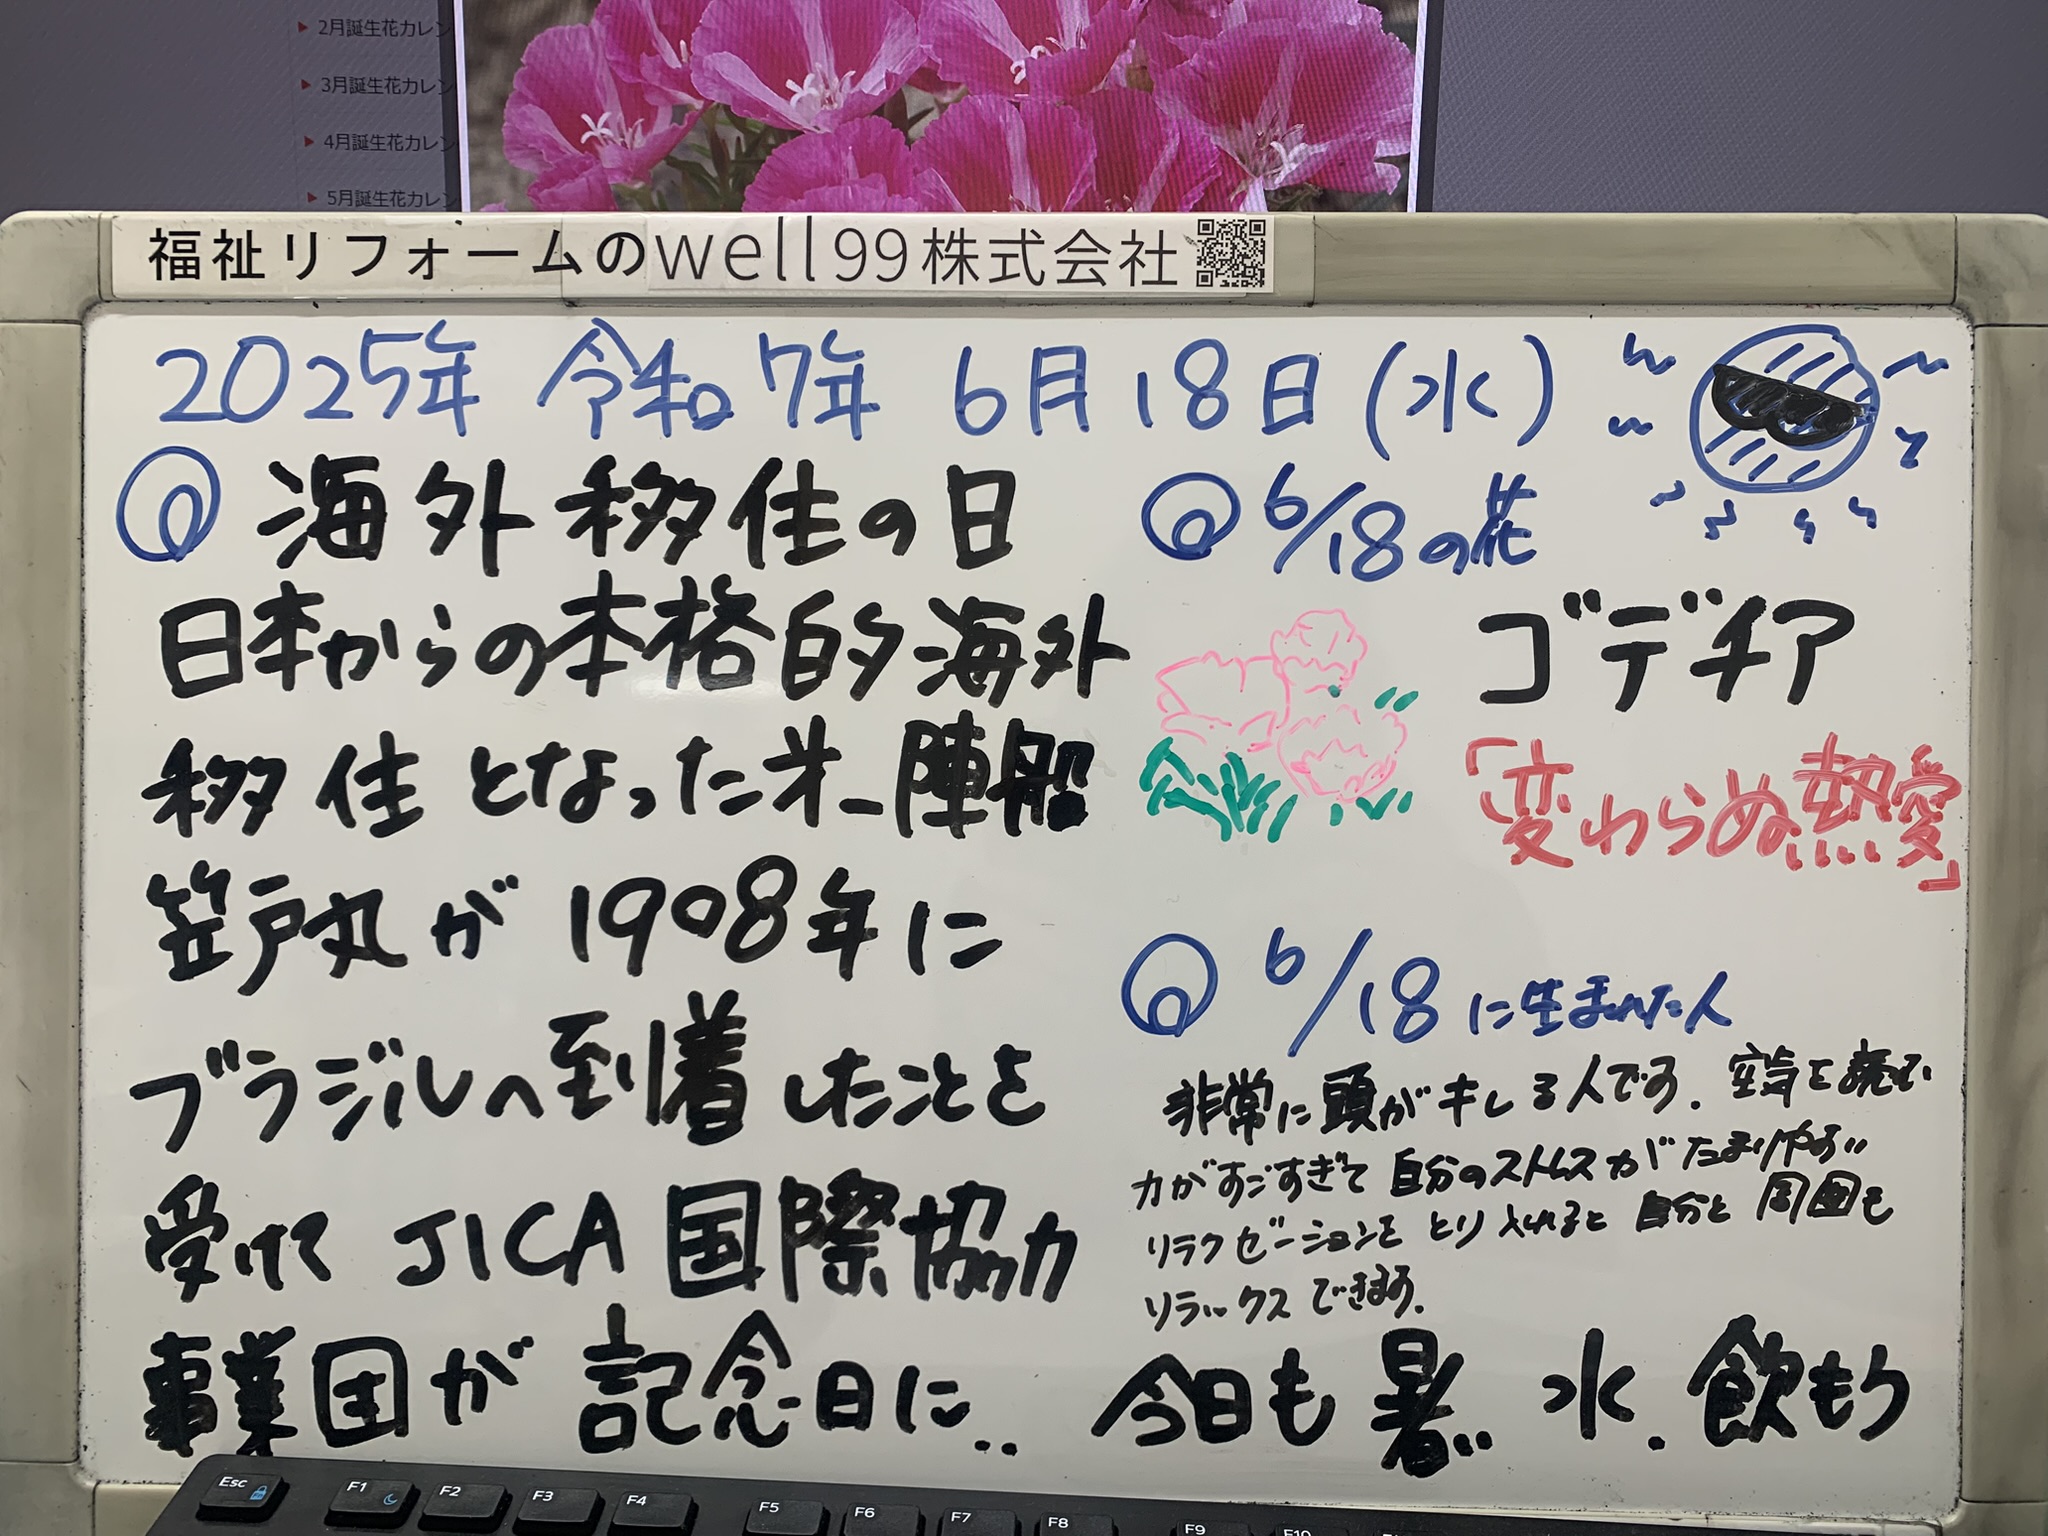 2月誕生花カレン
3月誕生花カレン
4月誕生花カレン
5月誕生花カレン
福祉リフォームのwell99株式会社
2025年 令和7年 6月18日(水)
海外移住の日
日本からの本格的海外
移住となった第一陣船
笠戸丸が1908年に
ブラジルへ到着したことを
受けて JICA国際協力
事業団が記念日に..
6/18の花
ゴデチア
「変わらぬ熱愛」
6/18に生まれた人
非常に頭がキレる人です。空気を読む
力がすごすぎて自分のストレスがたまりやすい
リラクゼーションをとり入れると自分と周囲も
リラックスできます。
今日も暑い 水、飲もう
Esc
F1
F2
F3
F4
F5
F6
F7
F8
F9
F10